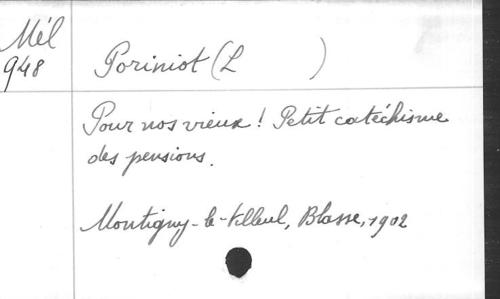 Mél
948
Poriniot (L )
Pour nos vieux ! Petit catéchisme
des pensions.
Montigny-le-Tilleul, Blasse, 1902